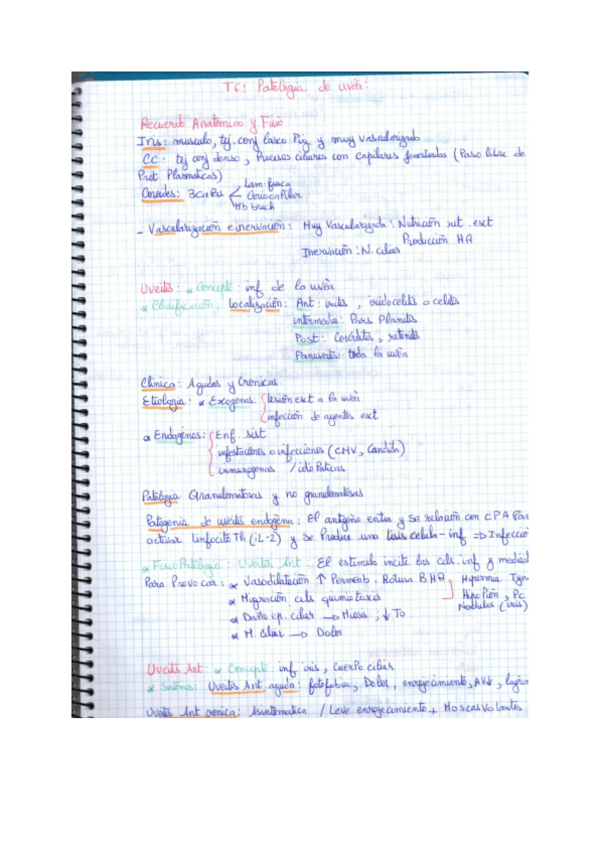 T6: Patología de uvea:
Recuerdo Anatómico y Fisio
Iris: musculo, tej. conj laxo Pig y muy vascularizado
CC: tej conj denso, Procesos ciliares con capilares fenestrados (Paso libre de
Prot Plasmaticas)
Coroides: 3 capas Lam. fusca
Coriocapilar
Mb bruch
- Vascularización e inervación: Muy vascularizada: Nutrición ret. ext
Producción HA
Inervación: N. ciliar
Uveitis: * Concepto: inf de la uvea
* Clasificación: Localización: Ant: iritis, iridociclitis o ciclitis
intermedia: Pars Planitis
Post: Coroiditis, retinitis
Panuveitis: toda la uvea
Clínica: Agudas y Crónicas
Etiología: * Exogenas: lesión ext a la uvea
infección de agentes ext
* Endógenas: Enf sist
infestaciones o infecciones (CMV, Candida)
inmunogenas / idiopaticas
Patología Granulomatosas y no granulomatosas
Patogenia de uveitis endogena: El antigeno entra y se relacion con CPA Para
activar linfocito Th (iL-2) y se Produce una lisis celula - inf => Infecció
* Fisio Patología: Uveitis Ant: El estimulo incite las cels. inf y mediad
Para Provocar: * Vasodilatación ↑ Permeab. Rotura BHA Hiperemia
* Migración cels quimiotaxis HipoPión, Pc
* Daño ep. ciliar → Miosis ; ↓ To Nodulos (iris)
* M. Ciliar → Dolor
Uveitis Ant: * Concepto: inf iris, cuerpo ciliar
* Sintomas: Uveitis Ant. aguda: fotofobia, Dolor, enrojecimiento, AV↓,
Uveitis Ant cronica: Asintomatica / Leve enrojecimiento + Moscas volantes